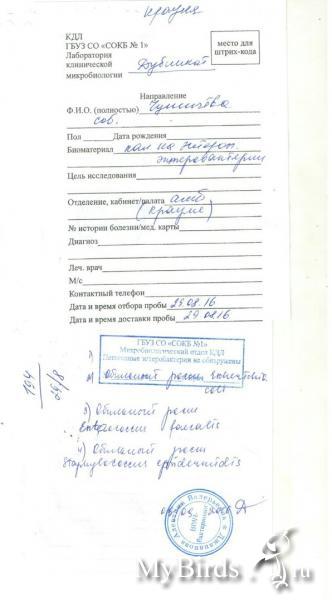 Крауня
КДЛ
ГБУЗ СО «СОКБ № 1»
Лаборатория
клинической
микробиологии
Дубликат
место для
штрих-кода
Направление
Ф.И.О. (полностью)
сов.
Пол Дата рождения
Биоматериал кал на
энтеробактерии
Цель исследования
Отделение, кабинет/палата амб
№ истории болезни/мед. карты
Диагноз
Леч. врач
М/с
Контактный телефон
Дата и время отбора пробы 29.08.16
Дата и время доставки пробы 29.08.16
ГБУЗ СО «СОКБ №1»
Микробиологический отдел КДЛ
Патогенные энтеробактерии не обнаружены
1)
2) Обильный рост
coli
194
29/8
3) Обильный рост
Enterococcus faecalis
4) Обильный рост
Staphylococcus epidermidis
MyBirds.ru